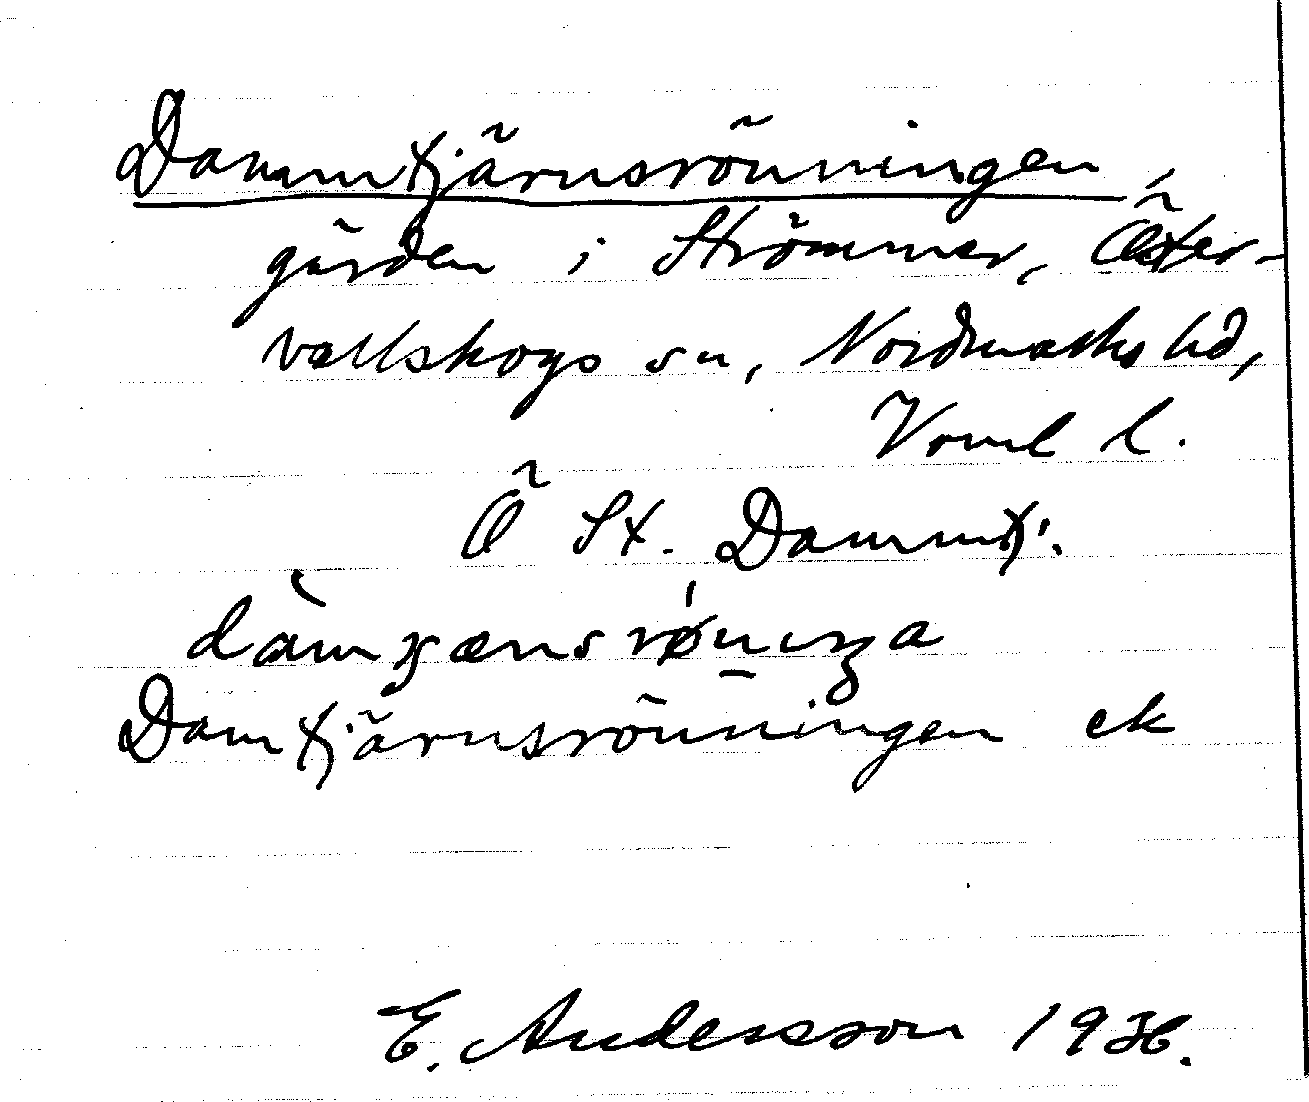 Dammtjärnsrönningen,
gården i Strömmer, Öster-
vallskogs sn, Nordmarks hd,
Vrml l.
Ö St. Dammtj.
Damtjärnsrönningen ek
E. Andersson 19